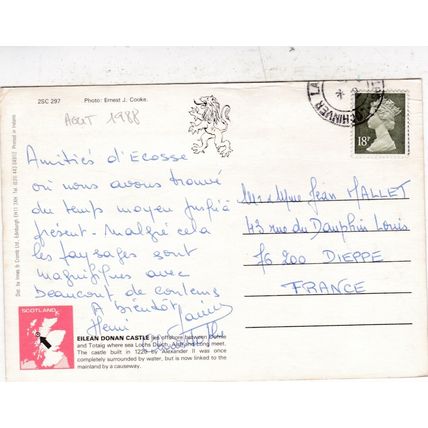 2SC 297
Photo: Ernest J. Cooke.
AOUT 1988
LOCHINVER LA
18P
Amitiés d'Ecosse
où nous avons trouvé
du temps moyen jusqu'à
présent - Malgré cela
les paysages sont
magnifiques avec
beaucoup de couleurs
A bientôt
Mr & Mme Jean MALLET
43 rue du Dauphin Louis
76 200 DIEPPE
FRANCE
SCOTLAND
EILEAN DONAN CASTLE lies offshore between Dornie
and Totaig where sea Lochs Duich, Alsh and Long meet.
The castle built in 1220 by Alexander II was once
completely surrounded by water, but is now linked to the
mainland by a causeway.